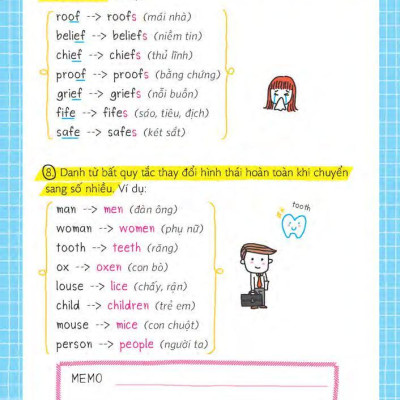 roof --> roofs (mái nhà)
belief --> beliefs (niềm tin)
chief --> chiefs (thủ lĩnh)
proof --> proofs (bằng chứng)
grief --> griefs (nỗi buồn)
fife --> fifes (sáo, tiêu, địch)
safe --> safes (két sắt)
8. Danh từ bất quy tắc thay đổi hình thái hoàn toàn khi chuyển
sang số nhiều. Ví dụ:
man --> men (đàn ông)
woman --> women (phụ nữ)
tooth --> teeth (răng)
ox --> oxen (con bò)
louse --> lice (chấy, rận)
child --> children (trẻ em)
mouse --> mice (con chuột)
person --> people (người ta)
tooth
MEMO